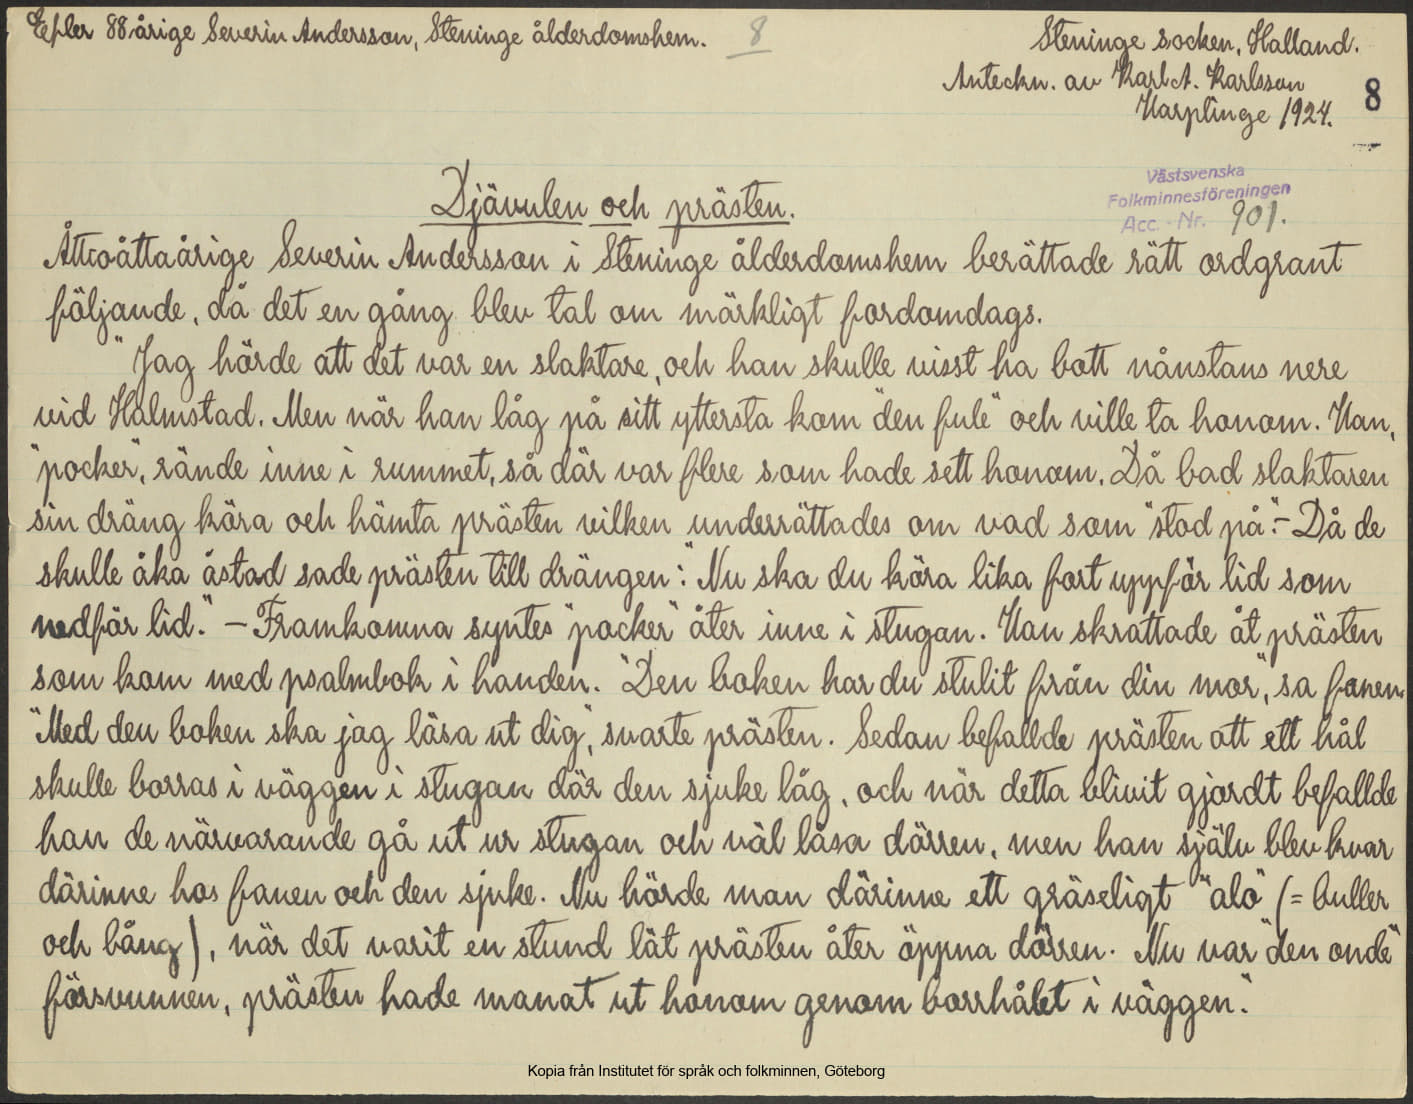 Efter 88årige Severin Andersson, Steninge ålderdomshem. 8
Steninge socken, Halland.
Anteckn. av Karl A. Karlsson
Harplinge 1924.
8
Västsvenska
Folkminnesföreningen
Acc.-Nr. 901.
Djävulen och prästen.
Åttioåttaårige Severin Andersson i Steninge ålderdomshem berättade rätt ordgrant
följande, då det en gång blev tal om märkligt fordomdags.
"Jag hörde att det var en slaktare, och han skulle visst ha bott nånstans nere
vid Halmstad. Men när han låg på sitt yttersta kom "den fule" och ville ta honom. Han,
"pocker", rände inne i rummet, så där var flere som hade sett honom. Då bad slaktaren
sin dräng köra och hämta prästen vilken underrättades om vad som "stod på". – Då de
skulle åka åstad sade prästen till drängen: "Nu ska du köra lika fort uppför lid som
nedför lid." – Framkomna syntes "pocker" åter inne i stugan. Han skrattade åt prästen
som kom med psalmbok i handen. "Den boken har du stulit från din mor", sa fanen.
"Med den boken ska jag läsa ut dig", svarte prästen. Sedan befallde prästen att ett hål
skulle borras i väggen i stugan där den sjuke låg, och när detta blivit gjordt befallde
han de närvarande gå ut ur stugan och väl låsa dörren, men han själv blev kvar
därinne hos fanen och den sjuke. Nu hörde man därinne ett gräseligt "alo" (= buller
och bång), när det varit en stund lät prästen åter öppna dörren. Nu var "den onde"
försvunnen, prästen hade manat ut honom genom borrhålet i väggen."
Kopia från Institutet för språk och folkminnen, Göteborg